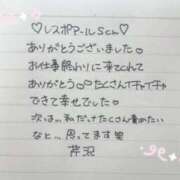 ♡レスポアールSさん♡
ありがとうございました♡
お仕事終わりに来てくれて
ありがとう♡たくさんイチャイチャ
できて幸せでした♡
次は、私だけたくさん責めたい
なと…思ってます笑
芹沢